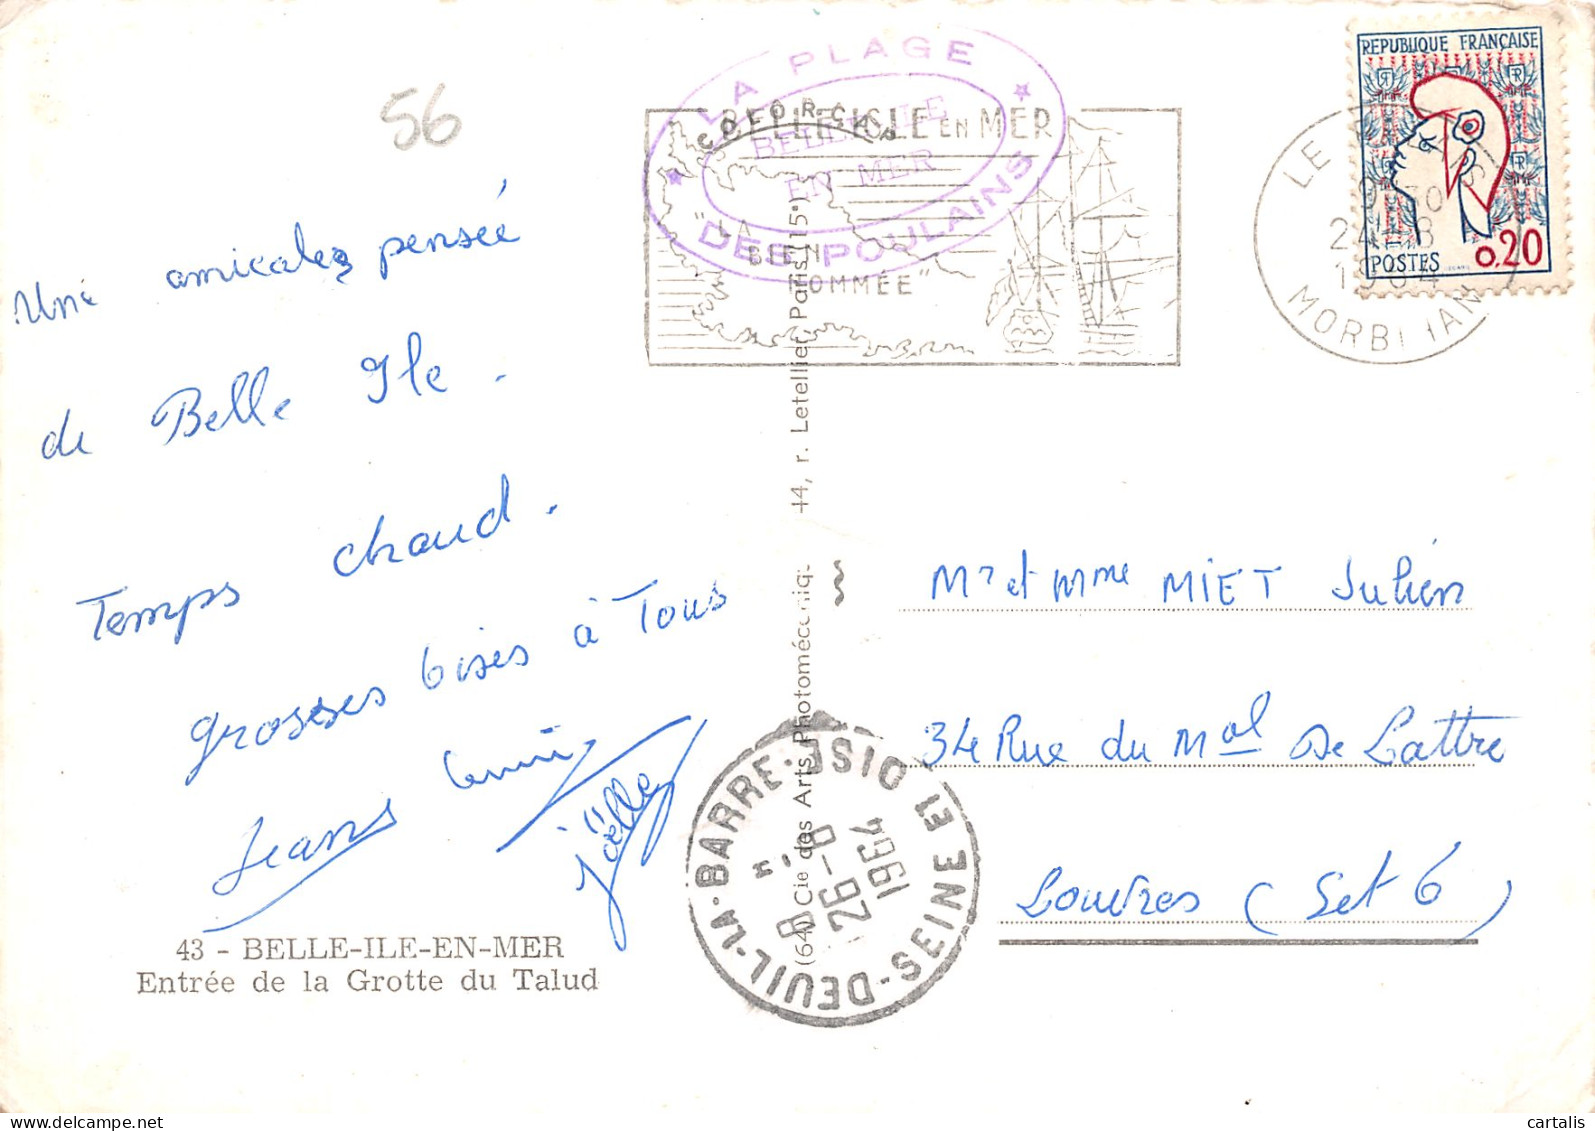 56
Une amicale pensée
de Belle Ile.
Temps chaud.
grosses bises à Tous
Jeans
Joëlle
43 - BELLE-ILE-EN-MER
Entrée de la Grotte du Talud
LA PLAGE
DES POULAINS
BELLE ILE
EN MER
COFORCA
BELLE ISLE EN MER
"LA
BIEN
NOMMÉE"
(64) Cie des Arts Photomécaniq. 44, r. Letellier, Paris (15e)
REPUBLIQUE FRANÇAISE
RF
POSTES 0,20
LE PALAIS
24-8
1964
MORBIHAN
Mr et Mme MIET Julien
34 Rue du Mal De Lattre
Louvres (Set 6)
DEUIL-LA-BARRE
SEINE ET OISE
26-8
1964
cartalis
www.delcampe.net